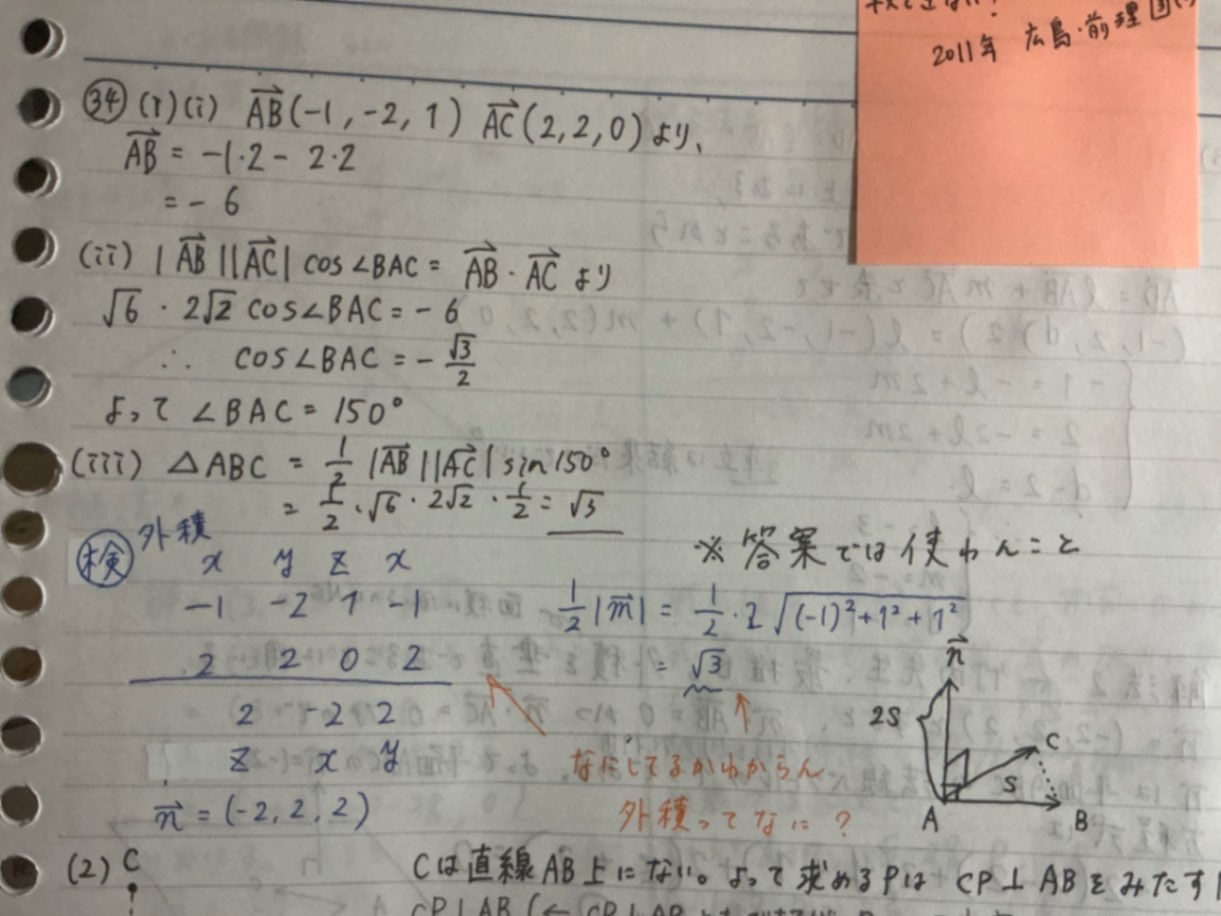 2011年 広島・前理
㉞ (1)(i) AB(-1, -2, 1) AC(2, 2, 0) より、
AB = -1・2 - 2・2
= - 6
(ii) |AB||AC| cos∠BAC = AB・AC より
√6・2√2 cos∠BAC = - 6
∴ cos∠BAC = - √3/2
よって ∠BAC = 150°
(iii) △ABC = 1/2 |AB||AC| sin150°
= 1/2・√6・2√2・1/2 = √3
検 外積
※ 答案では使わんこと
x y z x
-1 -2 1 -1
2 2 0 2
2 -2 2
z x y
n = (-2, 2, 2)
1/2 |n| = 1/2・2 √(-1)²+1²+1²
= √3
なにしてるかわからん
外積ってなに？
n
2S
C
S
A
B
(2) C
Cは直線AB上にない。よって求めるPは CP⊥ABをみたす